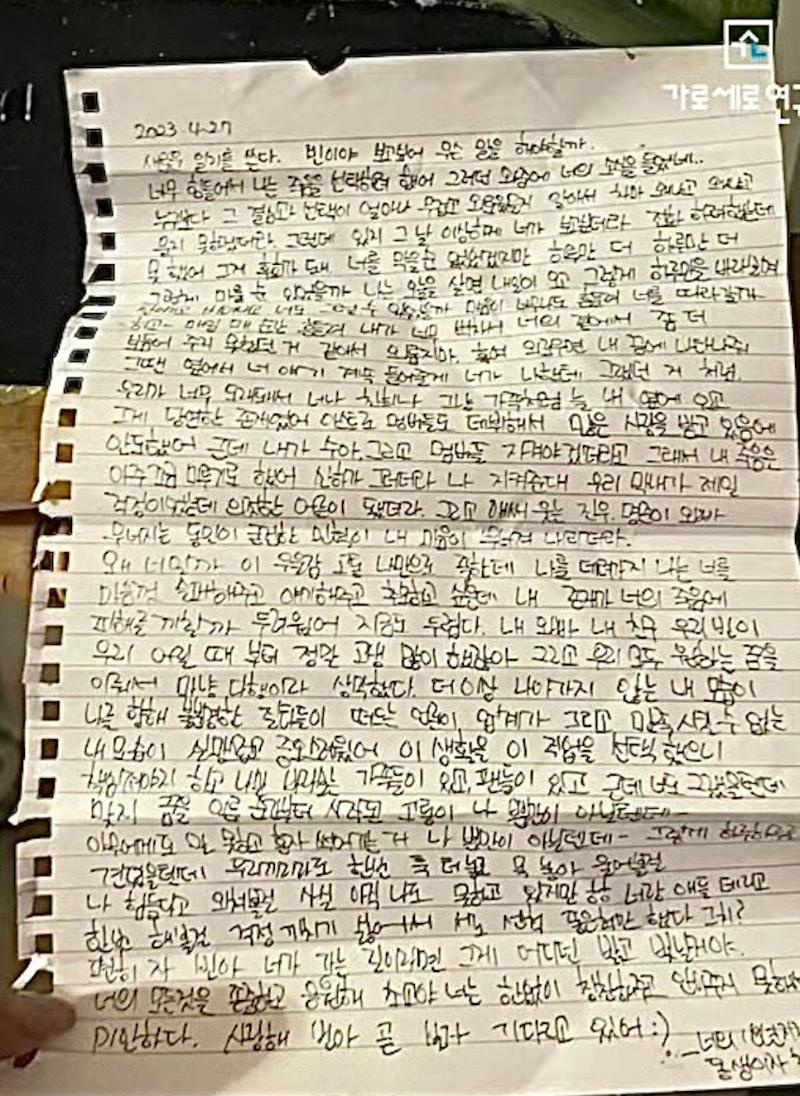 가로세로연구
2023.4.27
새로운 일기를 쓴다. 빈이야 보고싶어 무슨 말을 해야할까.
너무 힘들어서 나는 죽음을 선택하려 했어 그러던 와중에 너의 소식을 들었네..
누구보다 그 결심과 선택이 얼마나 무겁고 알아서
울지 못하겠더라. 그런데 있지 그 날 이상하게 너가 보고싶더라 전화 하려했는데
못 했어 그게 후회가 돼. 너를 막을 순 없었겠지만 하루만 더 하루만 더
그렇게 미룰 순 있었을까 나는 오늘을 살면 내일이 오고 그렇게 하루만을
너도 수 있을까 마음이 너무나도 힘들어 너를 따라갈까
매일 매 흔들려 내가 너무 바빠서 너의 곁에서 좀 더
보듬어 주지 못했던 거 같아서 외로우면 내 꿈에 나타나줘
그땐 옆에서 너 얘기 계속 들어줄게 너가 나한테 그랬던 거 처럼.
우리가 너무 오래돼서 너나 그냥 가족처럼 늘 내 옆에 있고
그게 당연한 존재였어 아스트로 멤버들도 데뷔해서 많은 사랑을 받고 있음에
안도했어 근데 내가 수아, 그리고 멤버들 지켜야겠더라고 그래서 내 죽음은
아주 조금 미루기로 했어 산하가 그러더라 나 지켜준대 우리 막내가 제일
걱정이었는데 의젓한 어른이 됐더라. 그리고 애써 웃는 진우, 명준이 오빠
무너지는 동민이 굳건한 민혁이 내 마음이 무너져 내리더라.
왜 너일까 이 우울감 고통 나만으로 족한데 나를 데려가지 나는 너를
마음껏 슬퍼해주고 얘기해주고 추모하고 싶은데 내 존재가 너의 죽음에
피해를 끼칠까 두려웠어 지금도 두렵다. 내 오빠 내 친구 우리 빈이
우리 어릴 때 부터 정말 고생 많이 했잖아 그리고 우리 모두 원하는 꿈을
이뤄서 마냥 다행이라 생각했다. 더이상 나아가지 않는 내 모습이
나를 향해 불편한 떠드는 연예 업계가 그리고 만족시킬 수 없는
내 모습이 실망스럽고 증오스러웠어 이 생활을 이 직업을 선택 했으니
책임져야지 하고 나만 바라보는 가족들이 있고, 팬들이 있고 근데 너도 그랬을텐데
맞지 꿈을 이룬 순간부터 시작된 고통이 나 뿐만이 아닐텐데~
아무에게도 말 못하고 혼자 썩어가는 거 나 뿐만이 아닐텐데~ 그렇게 하루하루
견뎠을텐데 우리끼리라도 한번 툭 터놓고 목 놓아 울어볼걸
나 힘들다고 외쳐볼걸 사실 아직 나도 못하고 있지만 항상 너랑 애들 데리고
한번 해볼걸 걱정 끼치기 싫어서 서로 했다 그치?
편히 자 빈아 너가 가는 길이라면 그게 어디던 밝고 빛날거야.
너의 모든것을 존중하고 응원해 최고야 너는 한없이 칭찬해주고 안아주지 못해서
미안하다. 사랑해 빈아 곧 보자 기다리고 있어 :)
-너의
동생이자